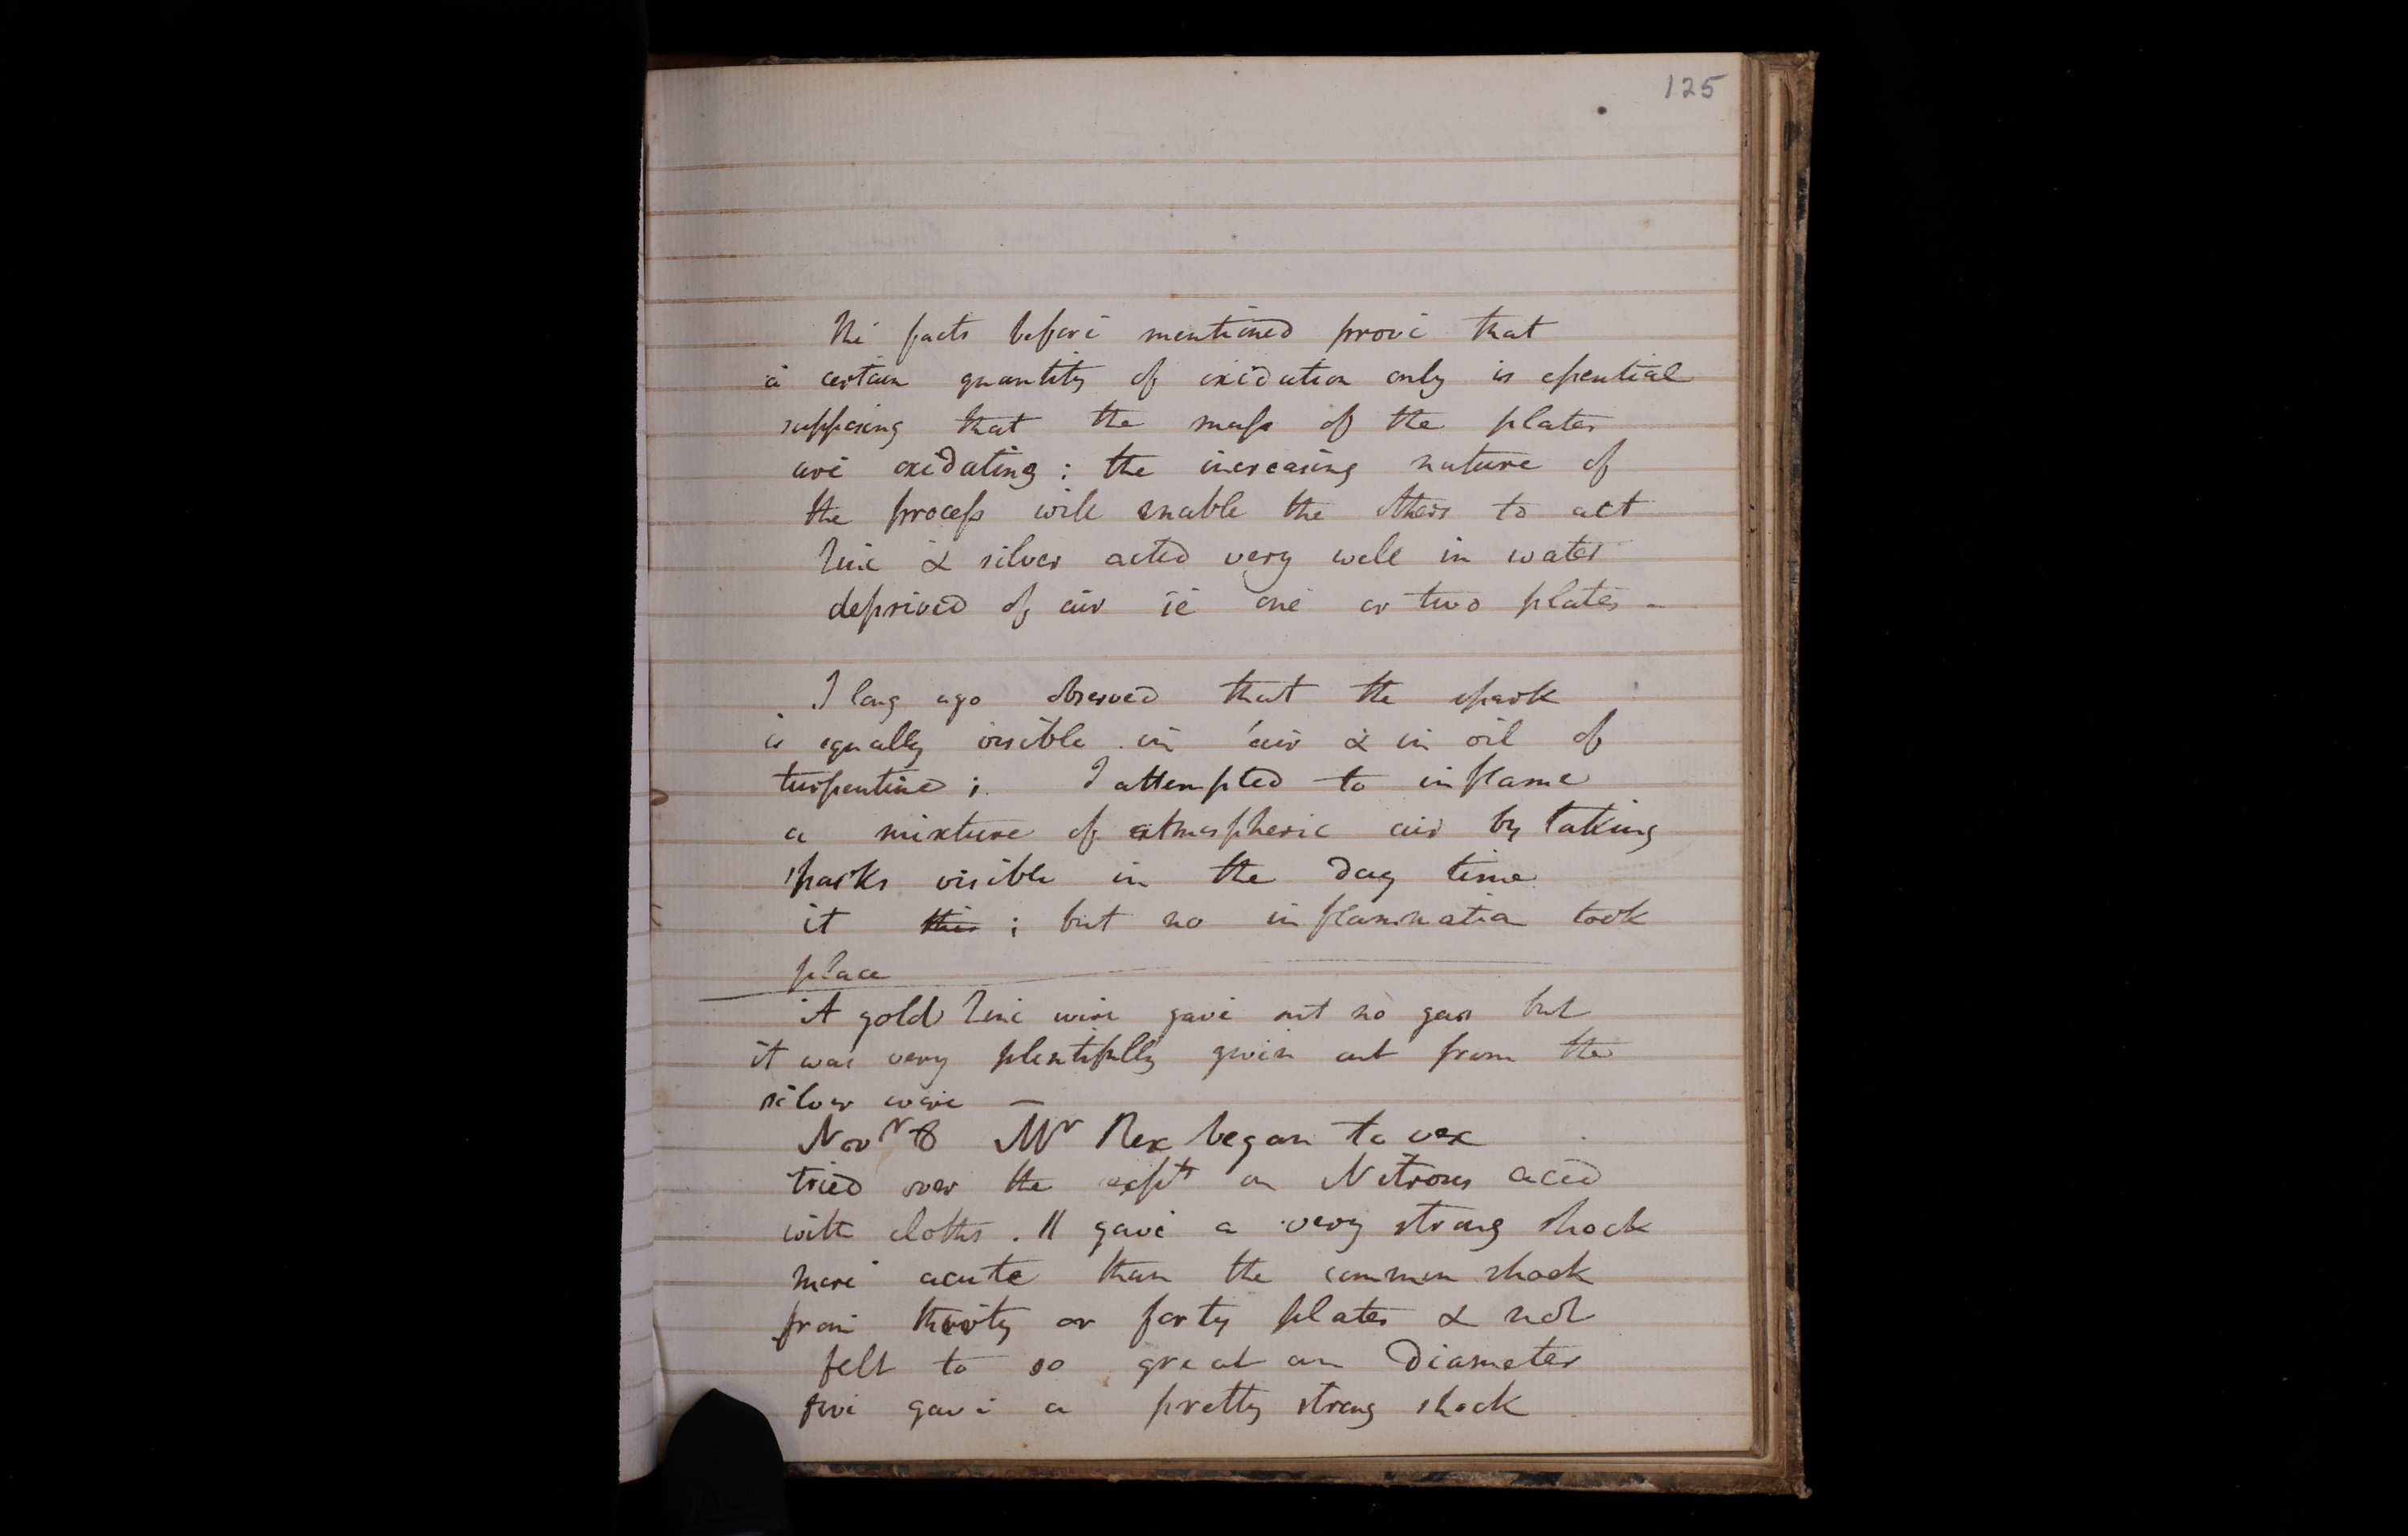 125
The facts before mentioned prove that
a certain quantity of oxidation only is essential
supposing that the mass of the plates
are oxidating: the increasing nature of
the process will enable the others to act
Zinc & silver acted very well in water
deprived of air ie one or two plates -
I long ago observed that the spark
is equally visible in air & in oil of
turpentine; I attempted to inflame
a mixture of atmospheric air by taking
sparks visible in the day time
it this; but no inflammation took
place
A gold Zinc wire gave out no gas but
it was very plentifully given out from the
silver wire —
Novr 8 Mr Rex began to vex
tried over the expts on Nitrous acid
with cloths. 11 gave a very strong shock
more acute than the common shock
from thirty or forty plates & not
felt to so great an Diameter
five gave a pretty strong shock